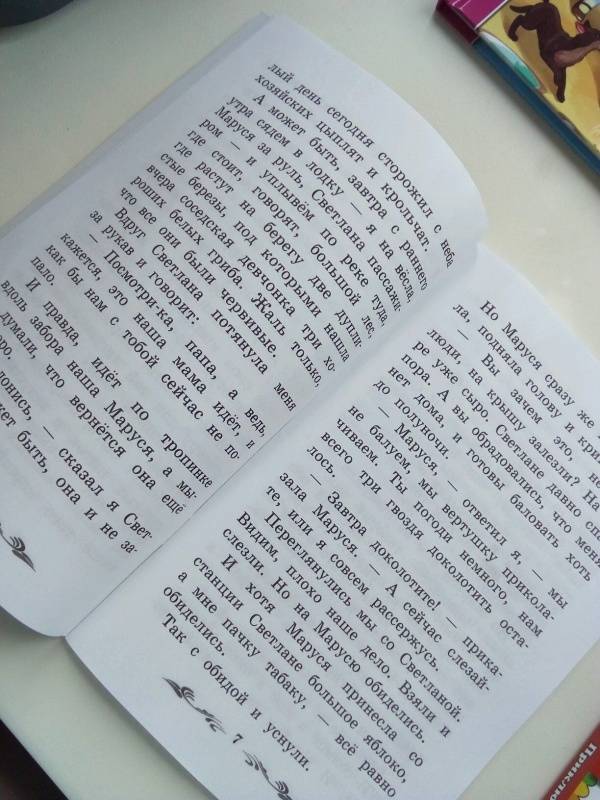 лый день сегодня сторожил с неба
хозяйских цыплят и крольчат.
А может быть, завтра с раннего
утра сядем в лодку — я на вёсла,
Маруся за руль, Светлана пассажи-
ром — и уплывём по реке туда,
где стоит, говорят, большой лес,
где растут на берегу две дупли-
стые березы, под которыми нашла
вчера соседская девчонка три хо-
роших белых гриба. Жаль только,
что все они были червивые.
Вдруг Светлана потянула меня
за рукав и говорит:
— Посмотри-ка, папа, а ведь,
кажется, это наша мама идёт, и
как бы нам с тобой сейчас не по-
пало.
И правда, идёт по тропинке
вдоль забора наша Маруся, а мы-
думали, что вернётся она ещё
— сказал я Свет-
быть, она и не за-
Но Маруся сразу же
ла, подняла голову и
— Вы зачем это,
люди, на крышу залезли? На
ре уже сыро. Светлане давно
пора. А вы обрадовались, что меня
нет дома, и готовы баловать хоть
до полуночи.
— Маруся, — ответил я, — мы
не балуем, мы вертушку приколa-
чиваем. Ты погоди немного, нам
всего три гвоздя доколотить оста-
лось.
— Завтра доколотите! — прика-
зала Маруся. — А сейчас слезай-
те, или я совсем рассержусь.
Переглянулись мы со Светланой.
Видим, плохо наше дело. Взяли и
слезли. Но на Марусю обиделись.
И хотя Маруся принесла со
станции Светлане большое яблоко,
а мне пачку табаку, — всё равно
обиделись.
Так с обидой и уснули.
7